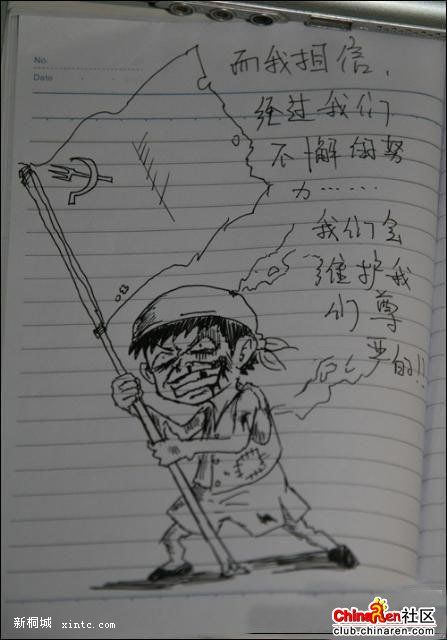 No.
Date
而我相信,
经过我们
不懈的努
力……
我们会
维护我
们尊
严的!!
新桐城 xintc.com
ChinaRen社区
club.chinaren.com